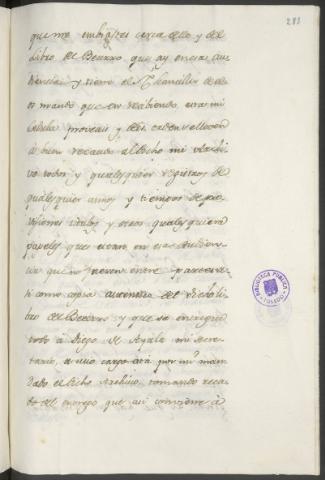 281
que me embiastes cerca dello y del
Libro de Becerro que ay en esas Au
diencias y tiene el Chanciller de
os mando que en recibiendo esta mi
Cedula proveais y deis orden
à buen recaudo al dicho mi Archi
vo todos y qualesquier registros de
qualesquier años y tiempos de pro
visiones, titulos y otros qualesquiera
papeles que esten en esa Audien
cia
como copia autentica del dicho li
bro de Becerro y que se entregue
todo à Diego de Ayala mi Secre
tario, a cuio cargo está por mi man
dado el dicho Archivo, tomando reca
do del entrego que asi combiene à
BIBLIOTECA PUBLICA
TOLEDO